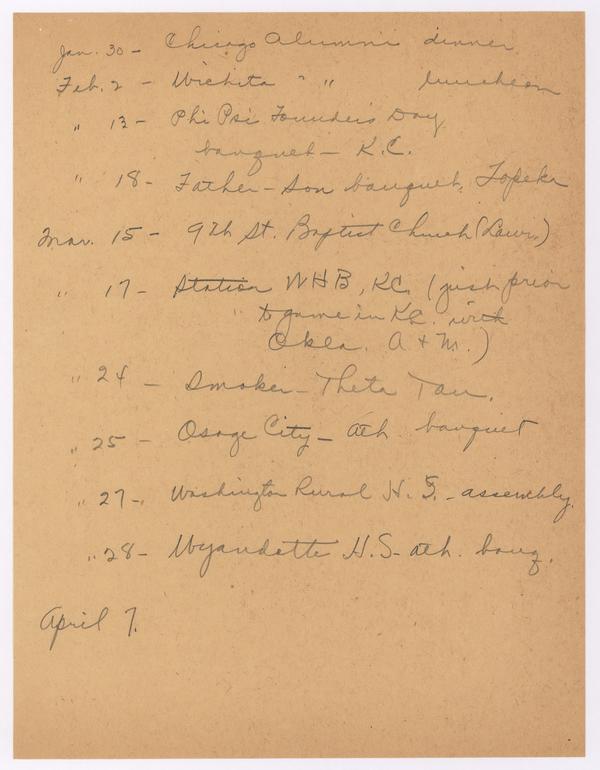 Jan. 30 - Chicago Alumni dinner
Feb. 2 - Wichita " " luncheon
" 13 - Phi Psi Founders Day
banquet - K.C.
" 18 - Father - Son banquet, Topeka
Mar. 15 - 9th St. Baptist Church (Lawr.)
" 17 - Station WHB, KC. (just prior
to game in KC. with
Okla. A + M.)
" 24 - Smoker - Theta Tau.
" 25 - Osage City - ath. banquet
" 27 - Washington Rural H. S. - assembly.
" 28 - Wyandotte H.S - ath. banq.
April 7.